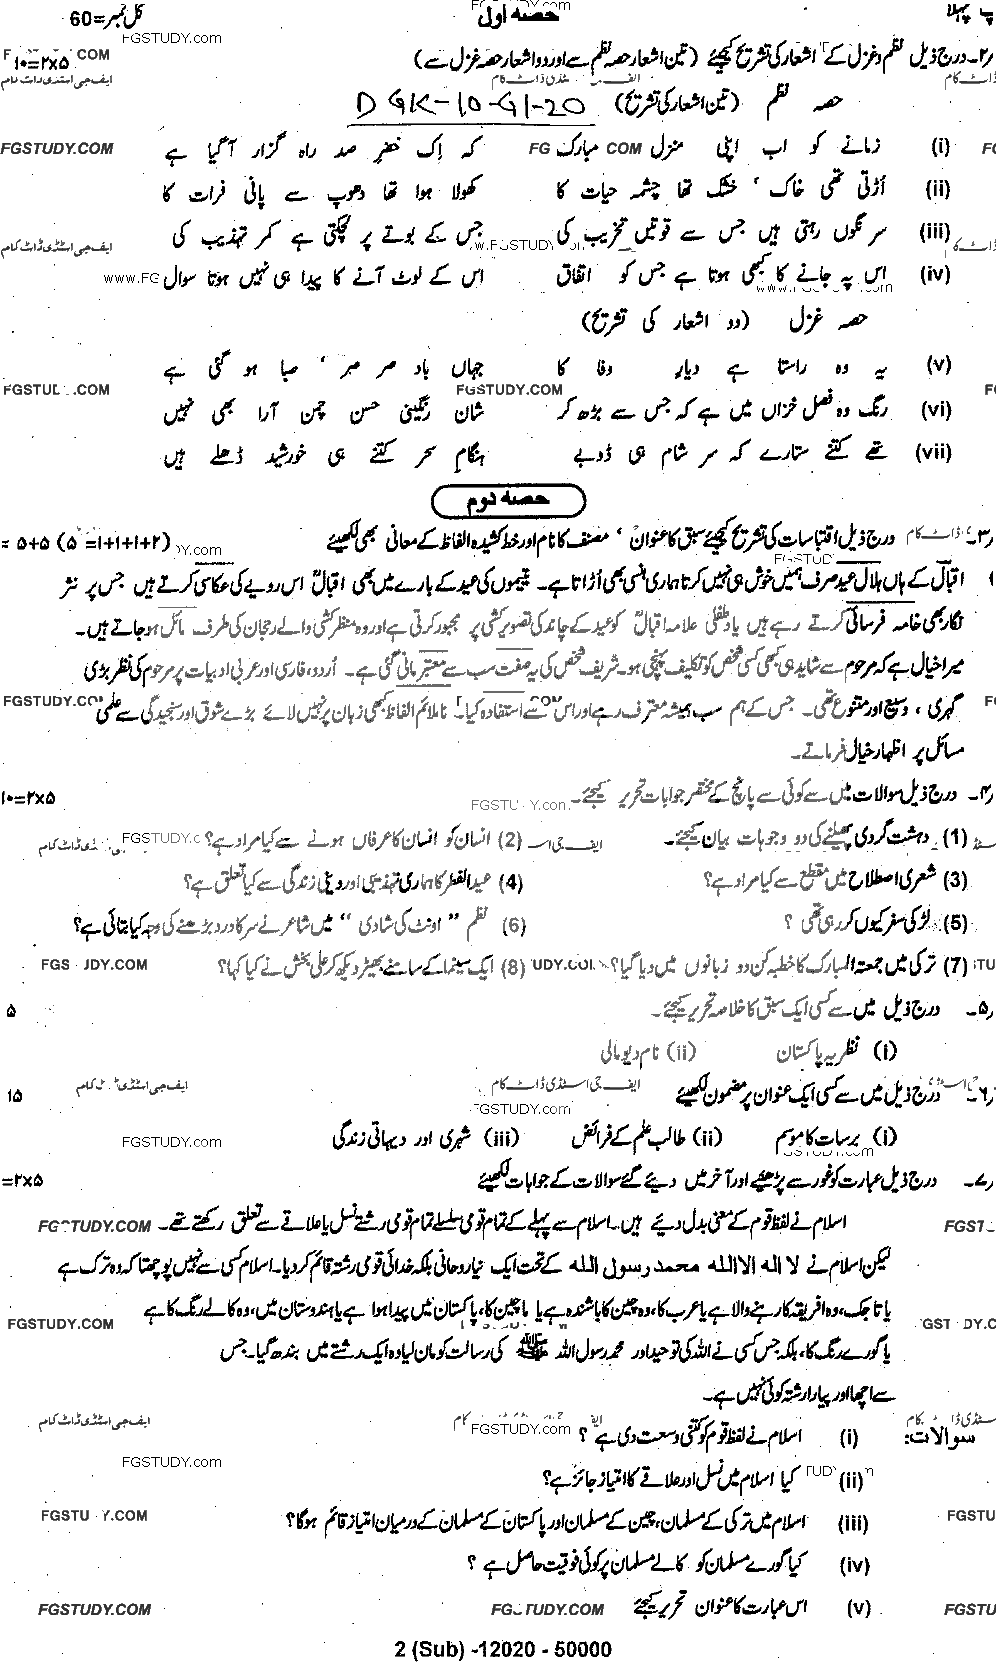 پہلا حصہ اول کل نمبر=60
۲۔ درج ذیل نظم و غزل کے اشعار کی تشریح کیجئے (تین اشعار حصہ نظم سے اور دو اشعار حصہ غزل سے) ۱۰=۲x۵
حصہ نظم (تین اشعار کی تشریح) DGK-10-G1-20
(i) زمانے کو اب اپنی منزل مبارک کہ اِک خضرِ صد راہ گزار آگیا ہے
(ii) اُڑتی تھی خاک ، خشک تھا چشمہ حیات کا کھولا ہوا تھا دھوپ سے پانی فرات کا
(iii) سرنگوں رہتی ہیں جس سے قوتیں تخریب کی جس کے بوتے پر لچکتی ہے کمر تہذیب کی
(iv) اس پہ جانے کا کبھی ہوتا ہے جس کو اتفاق اس کے لوٹ آنے کا پیدا ہی نہیں ہوتا سوال
حصہ غزل (دو اشعار کی تشریح)
(v) یہ وہ راستا ہے دیارِ وفا کا جہاں بادِ صرصر ، صبا ہو گئی ہے
(vi) رنگ وہ فصل خزاں میں ہے کہ جس سے بڑھ کر شان رنگینی حسن چمن آرا بھی نہیں
(vii) تھے کتنے ستارے کہ سر شام ہی ڈوبے ہنگامِ سحر کتنے ہی خورشید ڈھلے ہیں
حصہ دوم
۳۔ درج ذیل اقتباسات کی تشریح کیجئے سبق کا عنوان ، مصنف کا نام اور خط کشیدہ الفاظ کے معانی بھی لکھیئے (۱+۱+۱+۲=۵) ۵+۵ =
اقبالؒ کے ہاں ہلالِ عید صرف ہمیں خوش ہی نہیں کرتا ہماری ہنسی بھی اُڑاتا ہے۔ یتیموں کی عید کے بارے میں بھی اقبالؒ اس رویے کی عکاسی کرتے ہیں جس پر نثر
نگار بھی خامہ فرسائی کرتے رہے ہیں یادِ طفلی علامہ اقبالؒ کو عید کے چاند کی تصویر کشی پر مجبور کرتی ہے اور وہ منظر کشی والے رجحان کی طرف مائل ہو جاتے ہیں۔
میرا خیال ہے کہ مرحوم سے شاید ہی کبھی کسی شخص کو تکلیف پہنچی ہو۔ شریف شخص کی یہ صفت سب سے معتبر مانی گئی ہے۔ اُردو، فارسی اور عربی ادبیات پر مرحوم کی نظر بڑی
گہری ، وسیع اور متنوع تھی۔ جس کے ہم سب ہمیشہ معترف رہے اور اس سے استفادہ کیا۔ ناملائم الفاظ کبھی زبان پر نہیں لائے بڑے شوق اور سنجیدگی سے علمی
مسائل پر اظہار خیال فرماتے۔
۴۔ درج ذیل سوالات میں سے کوئی سے پانچ کے مختصر جوابات تحریر کیجئے۔ ۱۰=۲x۵
(1) دہشت گردی پھیلنے کی دو وجوہات بیان کیجئے۔ (2) انسان کو انسان کا عرفاں ہونے سے کیا مراد ہے؟
(3) شعری اصطلاح میں مقطع سے کیا مراد ہے؟ (4) عید الفطر کا ہماری تہذیبی اور دینی زندگی سے کیا تعلق ہے؟
(5) لڑکی سفر کیوں کر رہی تھی ؟ (6) نظم " اونٹ کی شادی " میں شاعر نے سر کا درد بڑھنے کی وجہ کیا بتائی ہے؟
(7) ترکی میں جمعتہ المبارک کا خطبہ کن دو زبانوں میں دیا گیا؟ (8) ایک سینما کے سامنے بھیڑ دیکھ کر علی بخش نے کیا کہا؟
۵۔ درج ذیل میں سے کسی ایک سبق کا خلاصہ تحریر کیجئے۔ ۵
(i) نظریہ پاکستان (ii) نام دیو مالی
۶۔ درج ذیل میں سے کسی ایک عنوان پر مضمون لکھیئے ۱۵
(i) برسات کا موسم (ii) طالب علم کے فرائض (iii) شہری اور دیہاتی زندگی
۷۔ درج ذیل عبارت کو غور سے پڑھیئے اور آخر میں دیے گئے سوالات کے جوابات لکھیئے =۲x۵
اسلام نے لفظ قوم کے معنی بدل دیے ہیں۔ اسلام سے پہلے کے تمام قومی سلسلے تمام قومی رشتے نسل یا علاقے سے تعلق رکھتے تھے۔
لیکن اسلام نے لا الہ الا اللہ محمد رسول اللہ کے تحت ایک نیا روحانی بلکہ خدائی قومی رشتہ قائم کر دیا۔ اسلام کسی سے نہیں پوچھتا کہ وہ ترک ہے
یا تاجک، وہ افریقہ کا رہنے والا ہے یا عرب کا، وہ چین کا باشندہ ہے یا ماچین کا، پاکستان میں پیدا ہوا ہے یا ہندوستان میں، وہ کالے رنگ کا ہے
یا گورے رنگ کا، بلکہ جس کسی نے اللہ کی توحید اور محمد رسول اللہ ﷺ کی رسالت کو مان لیا وہ ایک رشتے میں بندھ گیا۔ جس
سے اچھا اور پیارا رشتہ کوئی نہیں ہے۔
سوالات: (i) اسلام نے لفظ قوم کو کتنی وسعت دی ہے ؟
(ii) کیا اسلام میں نسل اور علاقے کا امتیاز جائز ہے؟
(iii) اسلام میں ترکی کے مسلمان، چین کے مسلمان اور پاکستان کے مسلمان کے درمیان امتیاز قائم ہوگا؟
(iv) کیا گورے مسلمان کو کالے مسلمان پر کوئی فوقیت حاصل ہے ؟
(v) اس عبارت کا عنوان تحریر کیجئے
2 (Sub) -12020 - 50000